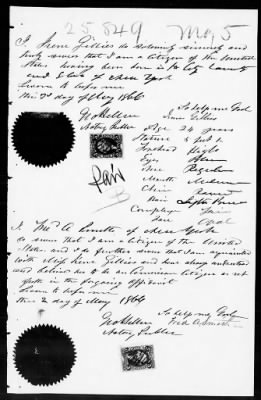 25849 May 5
I, Irene Gillies do solemnly sincerely and
truly swear that I am a citizen of the United
States having been born in the City County
and State of New York
Sworn to before me
this 2d day of May 1866
So help me God
Irene Gillies
Geo
Notary Public
Age 24 years
Stature 5 feet
Forehead High
Eyes Blue
Nose Regular
Mouth Medium
Chin Round
Hair Light Brown
Complexion Fair
Face Oval
Paid
I, A. of New York
do swear that I am a citizen of the United
States and I do further swear that I am acquainted
with Miss Irene Gillies and have always understood
and believe her to be an American citizen as set
forth in the foregoing affidavit
Sworn to before me
this 2 day of May 1866
So help me God
Geo
Notary Public